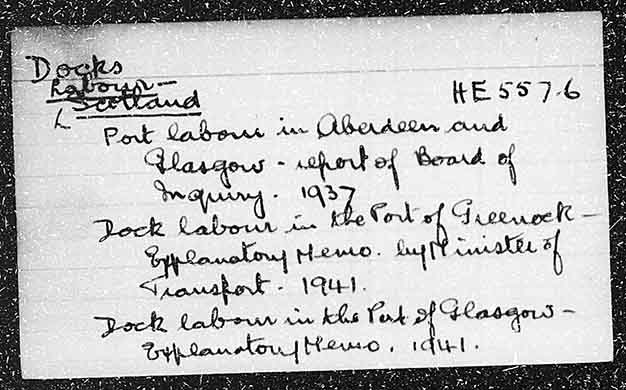 Docks
Labour -
Scotland
HE 557.6
Port labour in Aberdeen and
Glasgow - report of Board of
Inquiry. 1937
Dock labour in the Port of Greenock -
Explanatory Memo. by Minister of
Transport. 1941.
Dock labour in the Port of Glasgow -
Explanatory Memo. 1941.